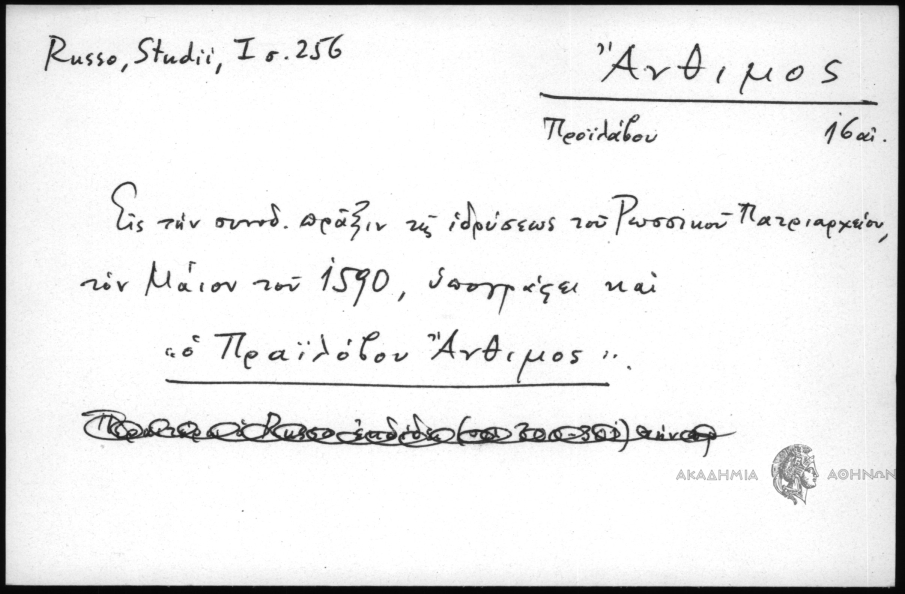 Russo, Studii, I σ. 256
Ἄνθιμος
Προϊλάβου 16 αἰ.
Εἰς τὴν συνοδ. πρᾶξιν τῆς ἱδρύσεως τοῦ Ρωσσικοῦ Πατριαρχείου,
τὸν Μάιον τοῦ 1590, ὑπογράφει καὶ
«ὁ Πραϊλόβου Ἄνθιμος».
Russo 300-301) τὴν
ΑΚΑΔΗΜΙΑ ΑΘΗΝΩΝ